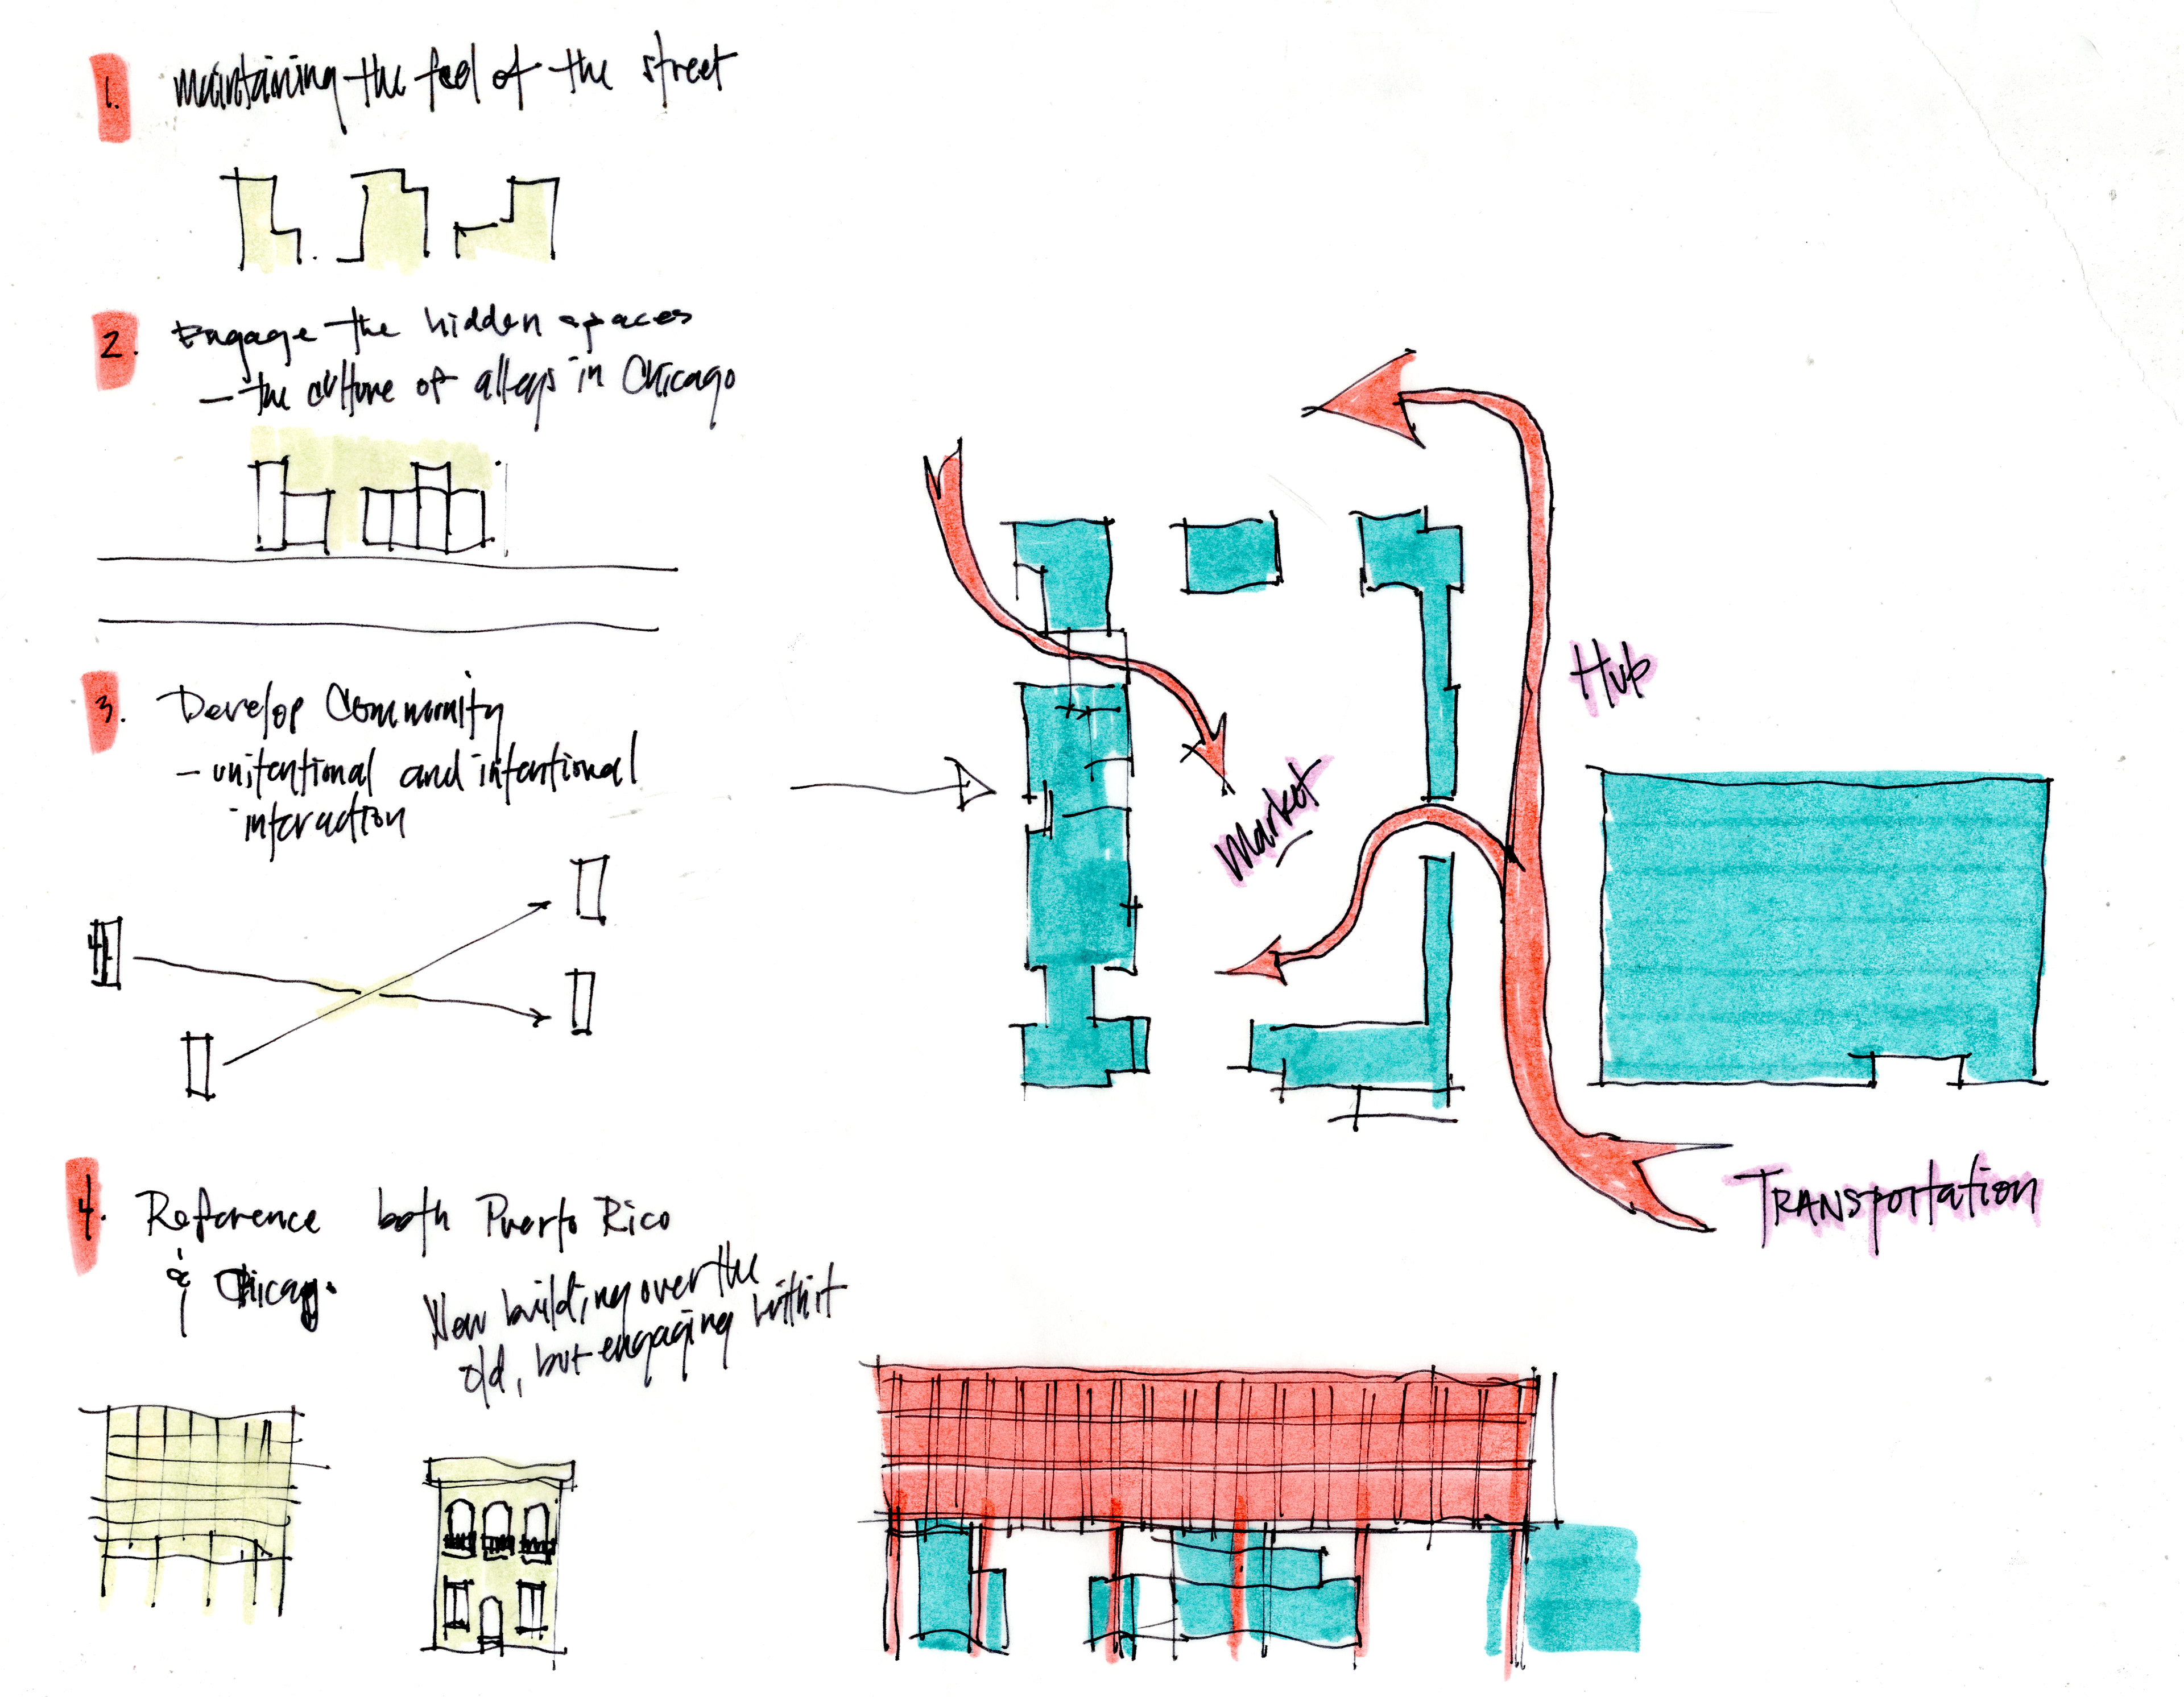 1. maintaining the feel of the street
2. Engage the hidden spaces
– the culture of alleys in Chicago
3. Develop Community
– unitentional and intentional
interaction
Hub
Market
TRANSportation
4. Reference both Puerto Rico
& Chicago.
New building over the
old, but engaging with it